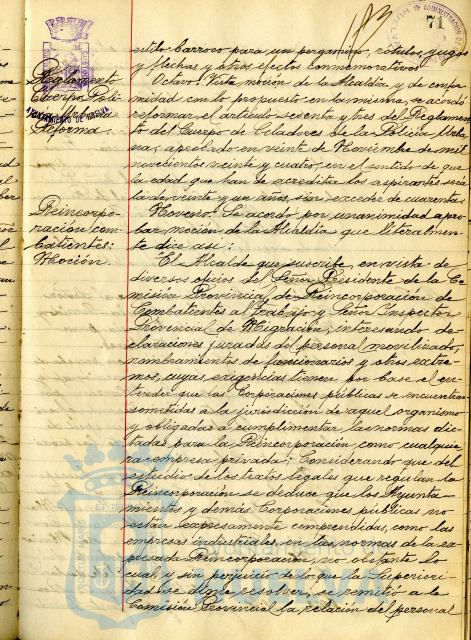 71
estilo barroco para un pergamino, rótulos, yugos
y flechas y otros efectos conmemorativos.
Reglamento
Cuerpo Poli-
Reforma.
Octavo. Vista moción de la Alcaldía, y de confor-
midad con lo propuesto en la misma, se acordó
reformar el artículo sesenta y tres del Reglamen-
to del Cuerpo de Celadores de la Policía Urba-
na, aprobado en veinte de Noviembre de mil
novecientos veinte y cuatro, en el sentido de que
la edad que han de acreditar los aspirantes será
la de veinte y un años, sin exceder de cuarenta.
Reincorpo-
ración com-
batientes:
Moción.
Noveno. Se acordó por unanimidad apro-
bar moción de la Alcaldía que literalmen-
te dice así:
"El Alcalde que suscribe, en vista de
diversos oficios del Señor Presidente de la Co-
misión Provincial de Reincorporación de
Combatientes al Trabajo y Señor Inspector
Provincial de Migración, interesando de-
claraciones juradas del personal movilizado,
nombramientos de funcionarios y otros extre-
mos, cuyas exigencias tienen por base el en-
tender que las Corporaciones públicas se encuentran
sometidas a la jurisdicción de aquel organismo
y obligadas a cumplimentar las normas dic-
tadas para la Reincorporación como cualquie-
ra empresa privada; Considerando que del
estudio de los textos legales que regulan la
Reincorporación se deduce que los Ayunta-
mientos y demás Corporaciones públicas no
están expresamente comprendidas, como las
empresas industriales, en las normas de la ex-
presada Reincorporación, no obstante lo
cual y sin perjuicio de lo que la Superiori-
dad se digne resolver, se remitió a la
Comisión Provincial la relación del personal